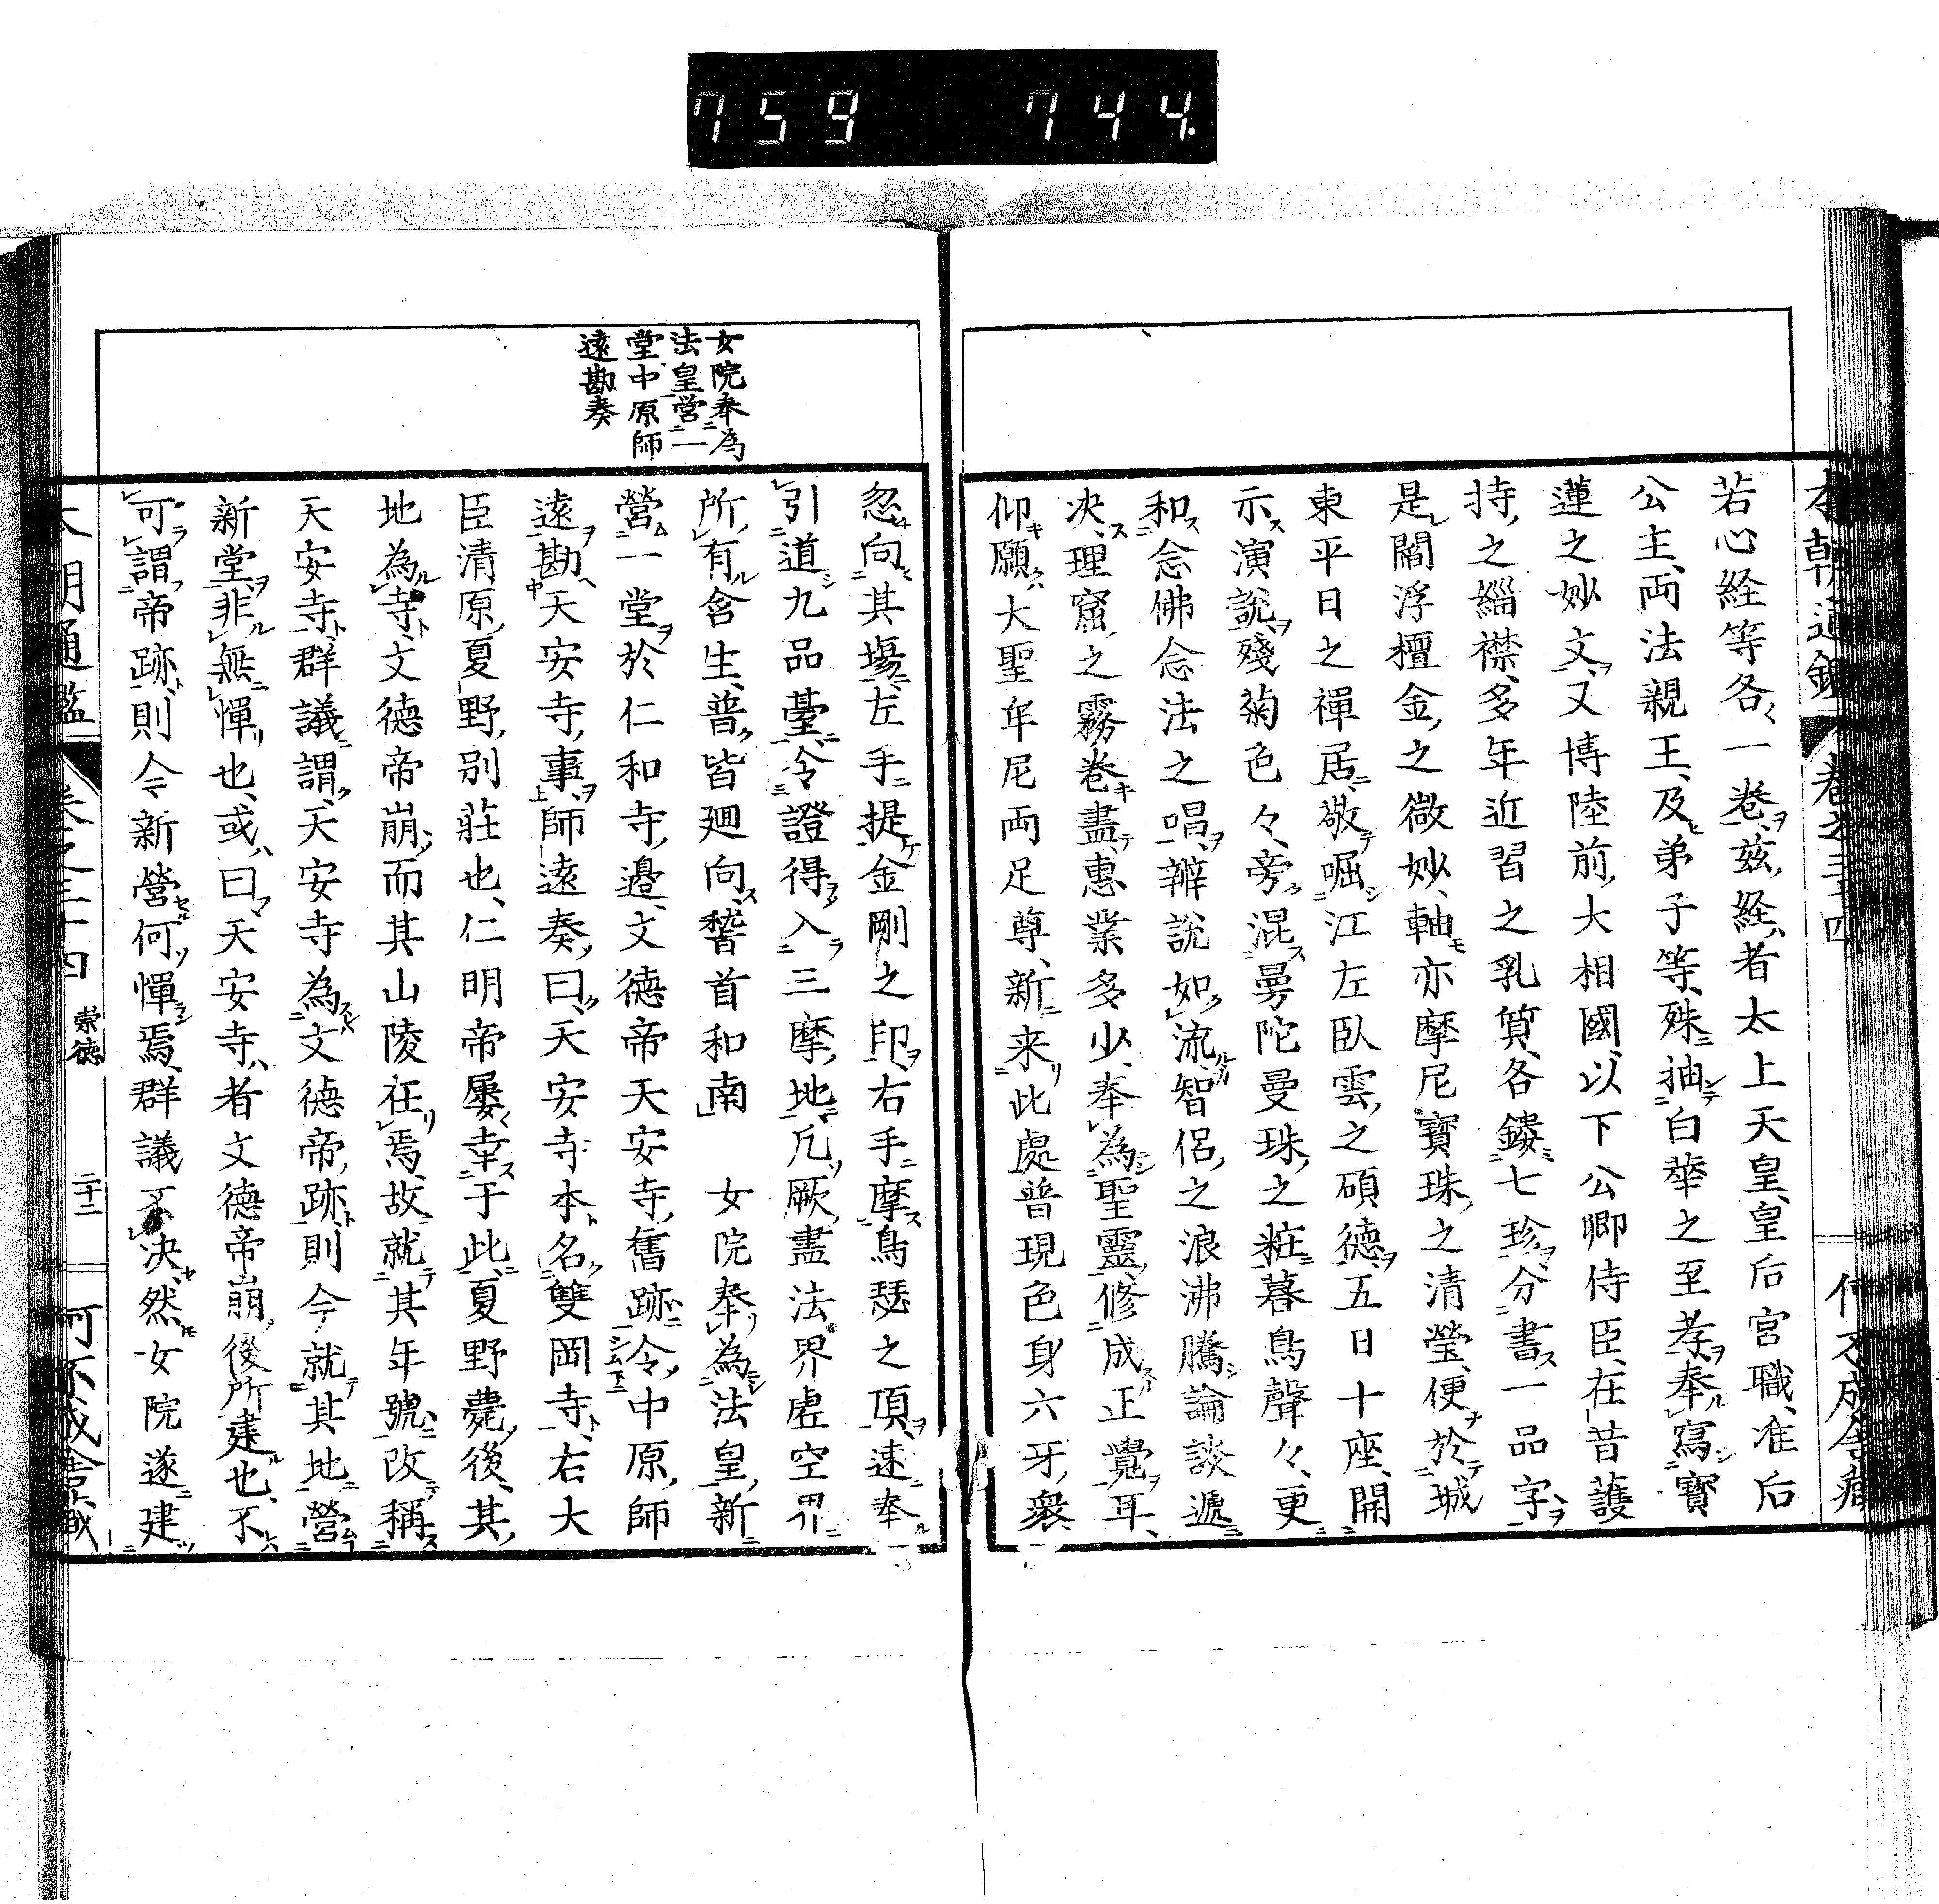 759 744.
本朝通鑑 卷之三十四 何不成舍藏
若心経等各々一卷、茲経者太上天皇、皇后宮職、准后
公主、両法親王、及弟子等、殊抽白華之至孝、奉寫寶
蓮之妙文、又博陸前大相國以下公卿侍臣、在昔護
持之緇襟、多年近習之乳質、各鏤七珍、分書一品字、
是閻浮檀金之微妙、軸亦摩尼寶珠之清瑩、便於城
東平日之禪居、敬啒江左臥雲之碩德、五日十座、開
示演說、殘菊色々、旁混曼陀曼珠之粧、暮鳥聲々、更
和念佛念法之唱、辨說如流、智侶之浪沸騰、論談遞
决、理窟之霧卷盡、惠業多少、奉為聖靈、修成正覺耳、
仰願大聖牟尼両足尊、新来此處、普現色身、六牙衆、
女院奉為
法皇営一
堂、中原師
遠勘奏
忽向其場、左手提金剛之印、右手摩烏瑟之頂、速奉
引道九品臺、令證得入三摩地、凡厥盡法界虛空界
所有含生、普皆廻向、稽首和南 女院奉為法皇、新
營一堂於仁和寺邊、文德帝天安寺舊跡、令中原師
遠勘天安寺事、師遠奏曰、天安寺本名雙岡寺、右大
臣清原夏野別莊也、仁明帝屢幸于此、夏野薨後、其
地為寺、文德帝崩而其山陵在焉、故就其年號、改稱
天安寺、群議謂、天安寺為文德帝跡、則今就其地營
新堂、非無憚也、或曰、天安寺者文德帝崩後所建也、不
可謂帝跡、則今新營何憚焉、群議不决、然女院遂建
本朝通鑑 卷之三十四 崇德 二十二 何不成舍藏